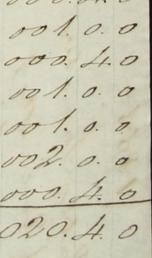 001. 0. 0
000. 4. 0
001. 0. 0
001. 0. 0
002. 0. 0
000. 4. 0
020. 4. 0